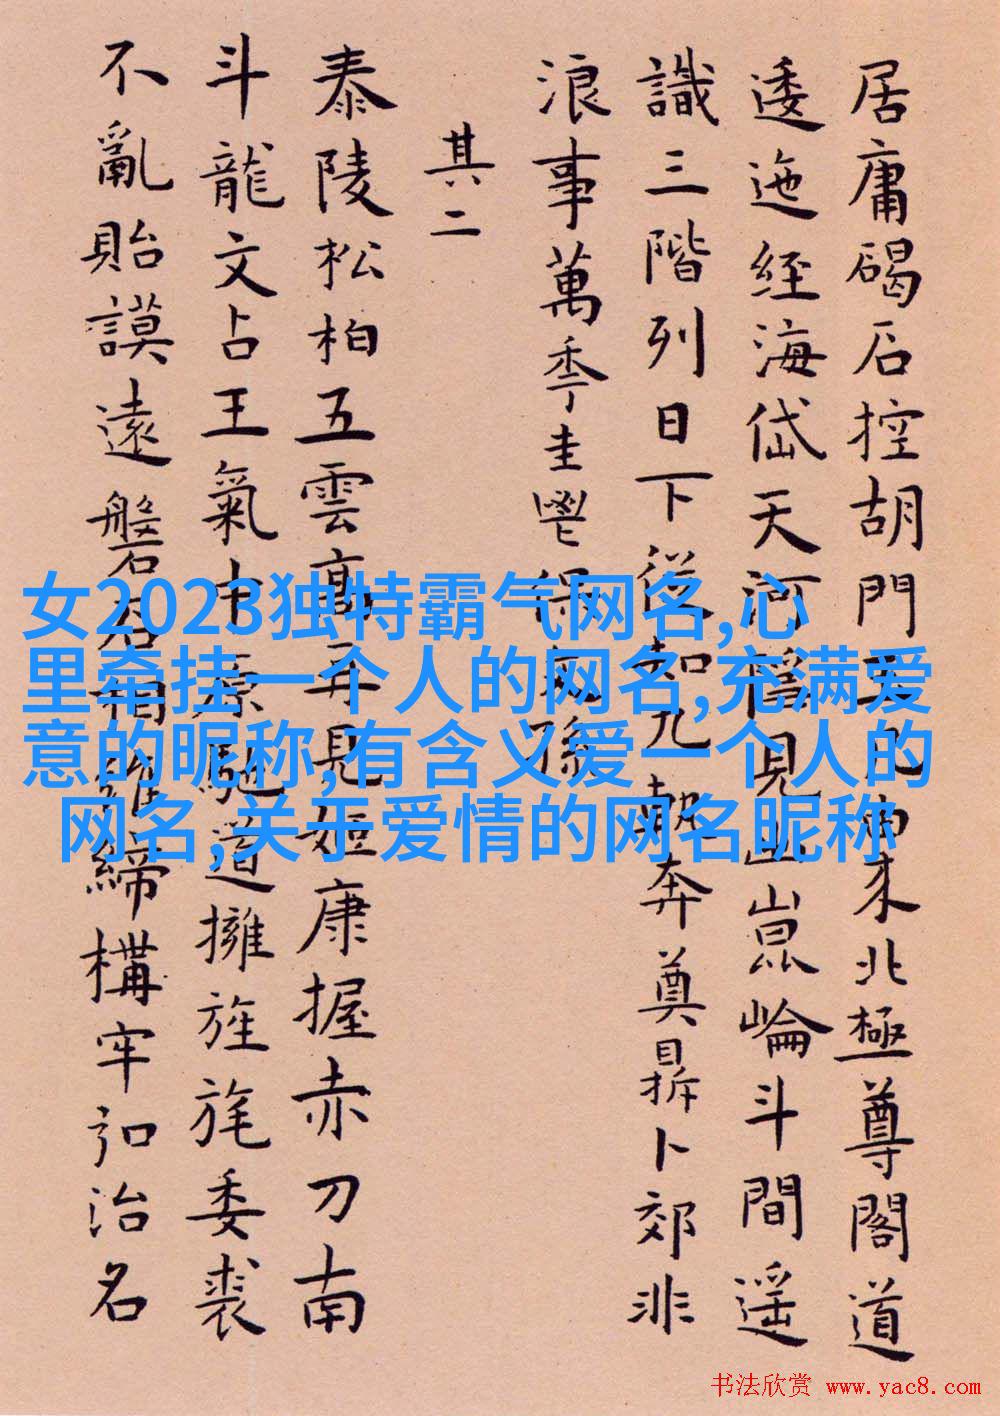 居庸碣石控胡門東來北極尊閣道
逶迤經海岱天河見崑崙斗間遥
識三階列日下從知九朝奔奠鼎卜郊非
浪事萬秊圭鬯保孫
其二
泰陵松柏五雲高再見姬康握赤刀南
斗龍文占王氣中原馳道擁旌旄委裘
不亂貽謨遠磐石相維締構牢弘治名
女2023独特霸气网名,心
里牵挂一个人的网名,充满爱
意的昵称,有含义爱一个人的
网名,关于爱情的网名昵称
书法欣赏 www.yac8.com